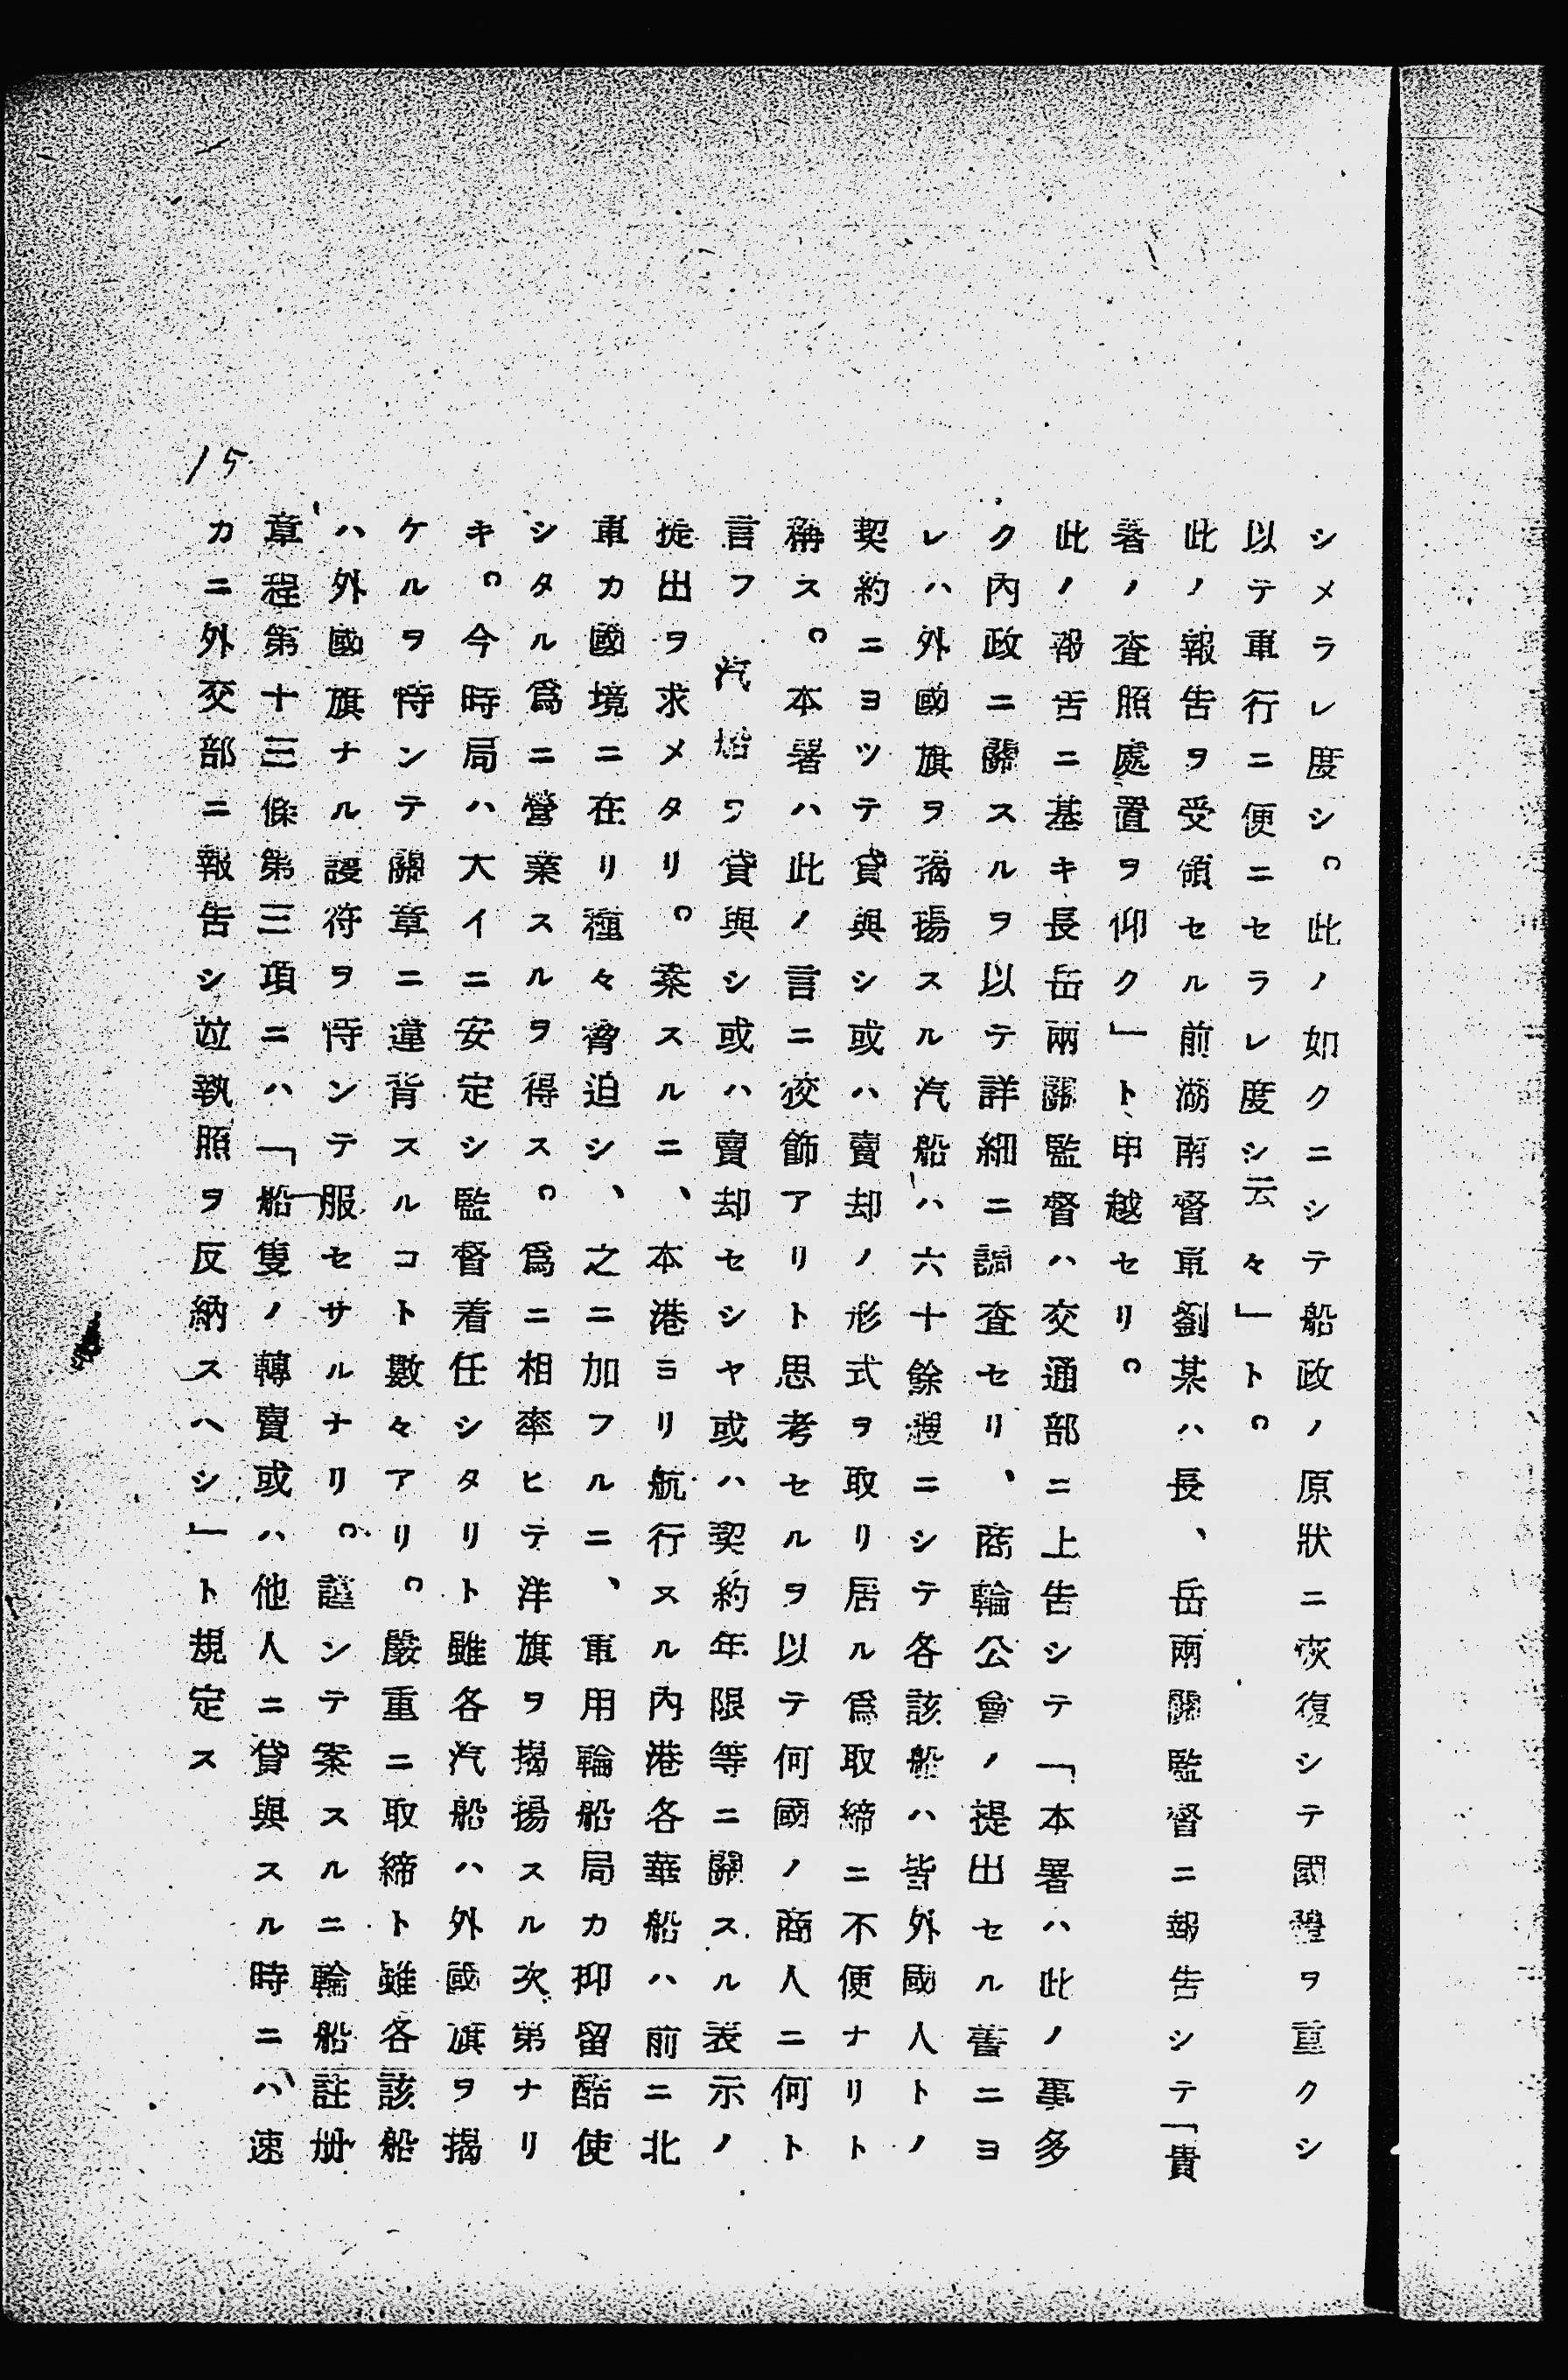 シメラレ度シ。此ノ如クニシテ船政ノ原狀ニ恢復シテ國體ヲ重クシ
以テ軍行ニ便ニセラレ度シ云々」ト。
此ノ報告ヲ受領セル前湖南督軍劉某ハ長、岳兩關監督ニ報告シテ「貴
署ノ査照處置ヲ仰ク」ト申越セリ。
此ノ報告ニ基キ長岳兩關監督ハ交通部ニ上告シテ「本署ハ此ノ事多
ク內政ニ關スルヲ以テ詳細ニ調査セリ、商輪公會ノ提出セル書ニヨ
レハ外國旗ヲ揭揚スル汽船ハ六十餘艘ニシテ各該船ハ皆外國人トノ
契約ニヨツテ貸與シ或ハ賣却ノ形式ヲ取リ居ル爲取締ニ不便ナリト
稱ス。本署ハ此ノ言ニ狡飾アリト思考セルヲ以テ何國ノ商人ニ何ト
言フ汽船ヲ貸與シ或ハ賣却セシヤ或ハ契約年限等ニ關スル表示ノ
提出ヲ求メタリ。案スルニ、本港ヨリ航行スル內港各華船ハ前ニ北
軍カ國境ニ在リ種々脅迫シ、之ニ加フルニ、軍用輪船局カ抑留酷使
シタル爲ニ營業スルヲ得ス。爲ニ相率ヒテ洋旗ヲ揭揚スル次第ナリ
キ。今時局ハ大イニ安定シ監督着任シタリト雖各汽船ハ外國旗ヲ揭
ケルヲ恃ンテ關章ニ違背スルコト數々アリ。嚴重ニ取締ト雖各該船
ハ外國旗ナル護符ヲ恃ンテ服セサルナリ。謹ンテ案スルニ輪船註册
章程第十三條第三項ニハ「船隻ノ轉賣或ハ他人ニ貸與スル時ニハ速
カニ外交部ニ報告シ竝執照ヲ反納スヘシ」ト規定ス
15